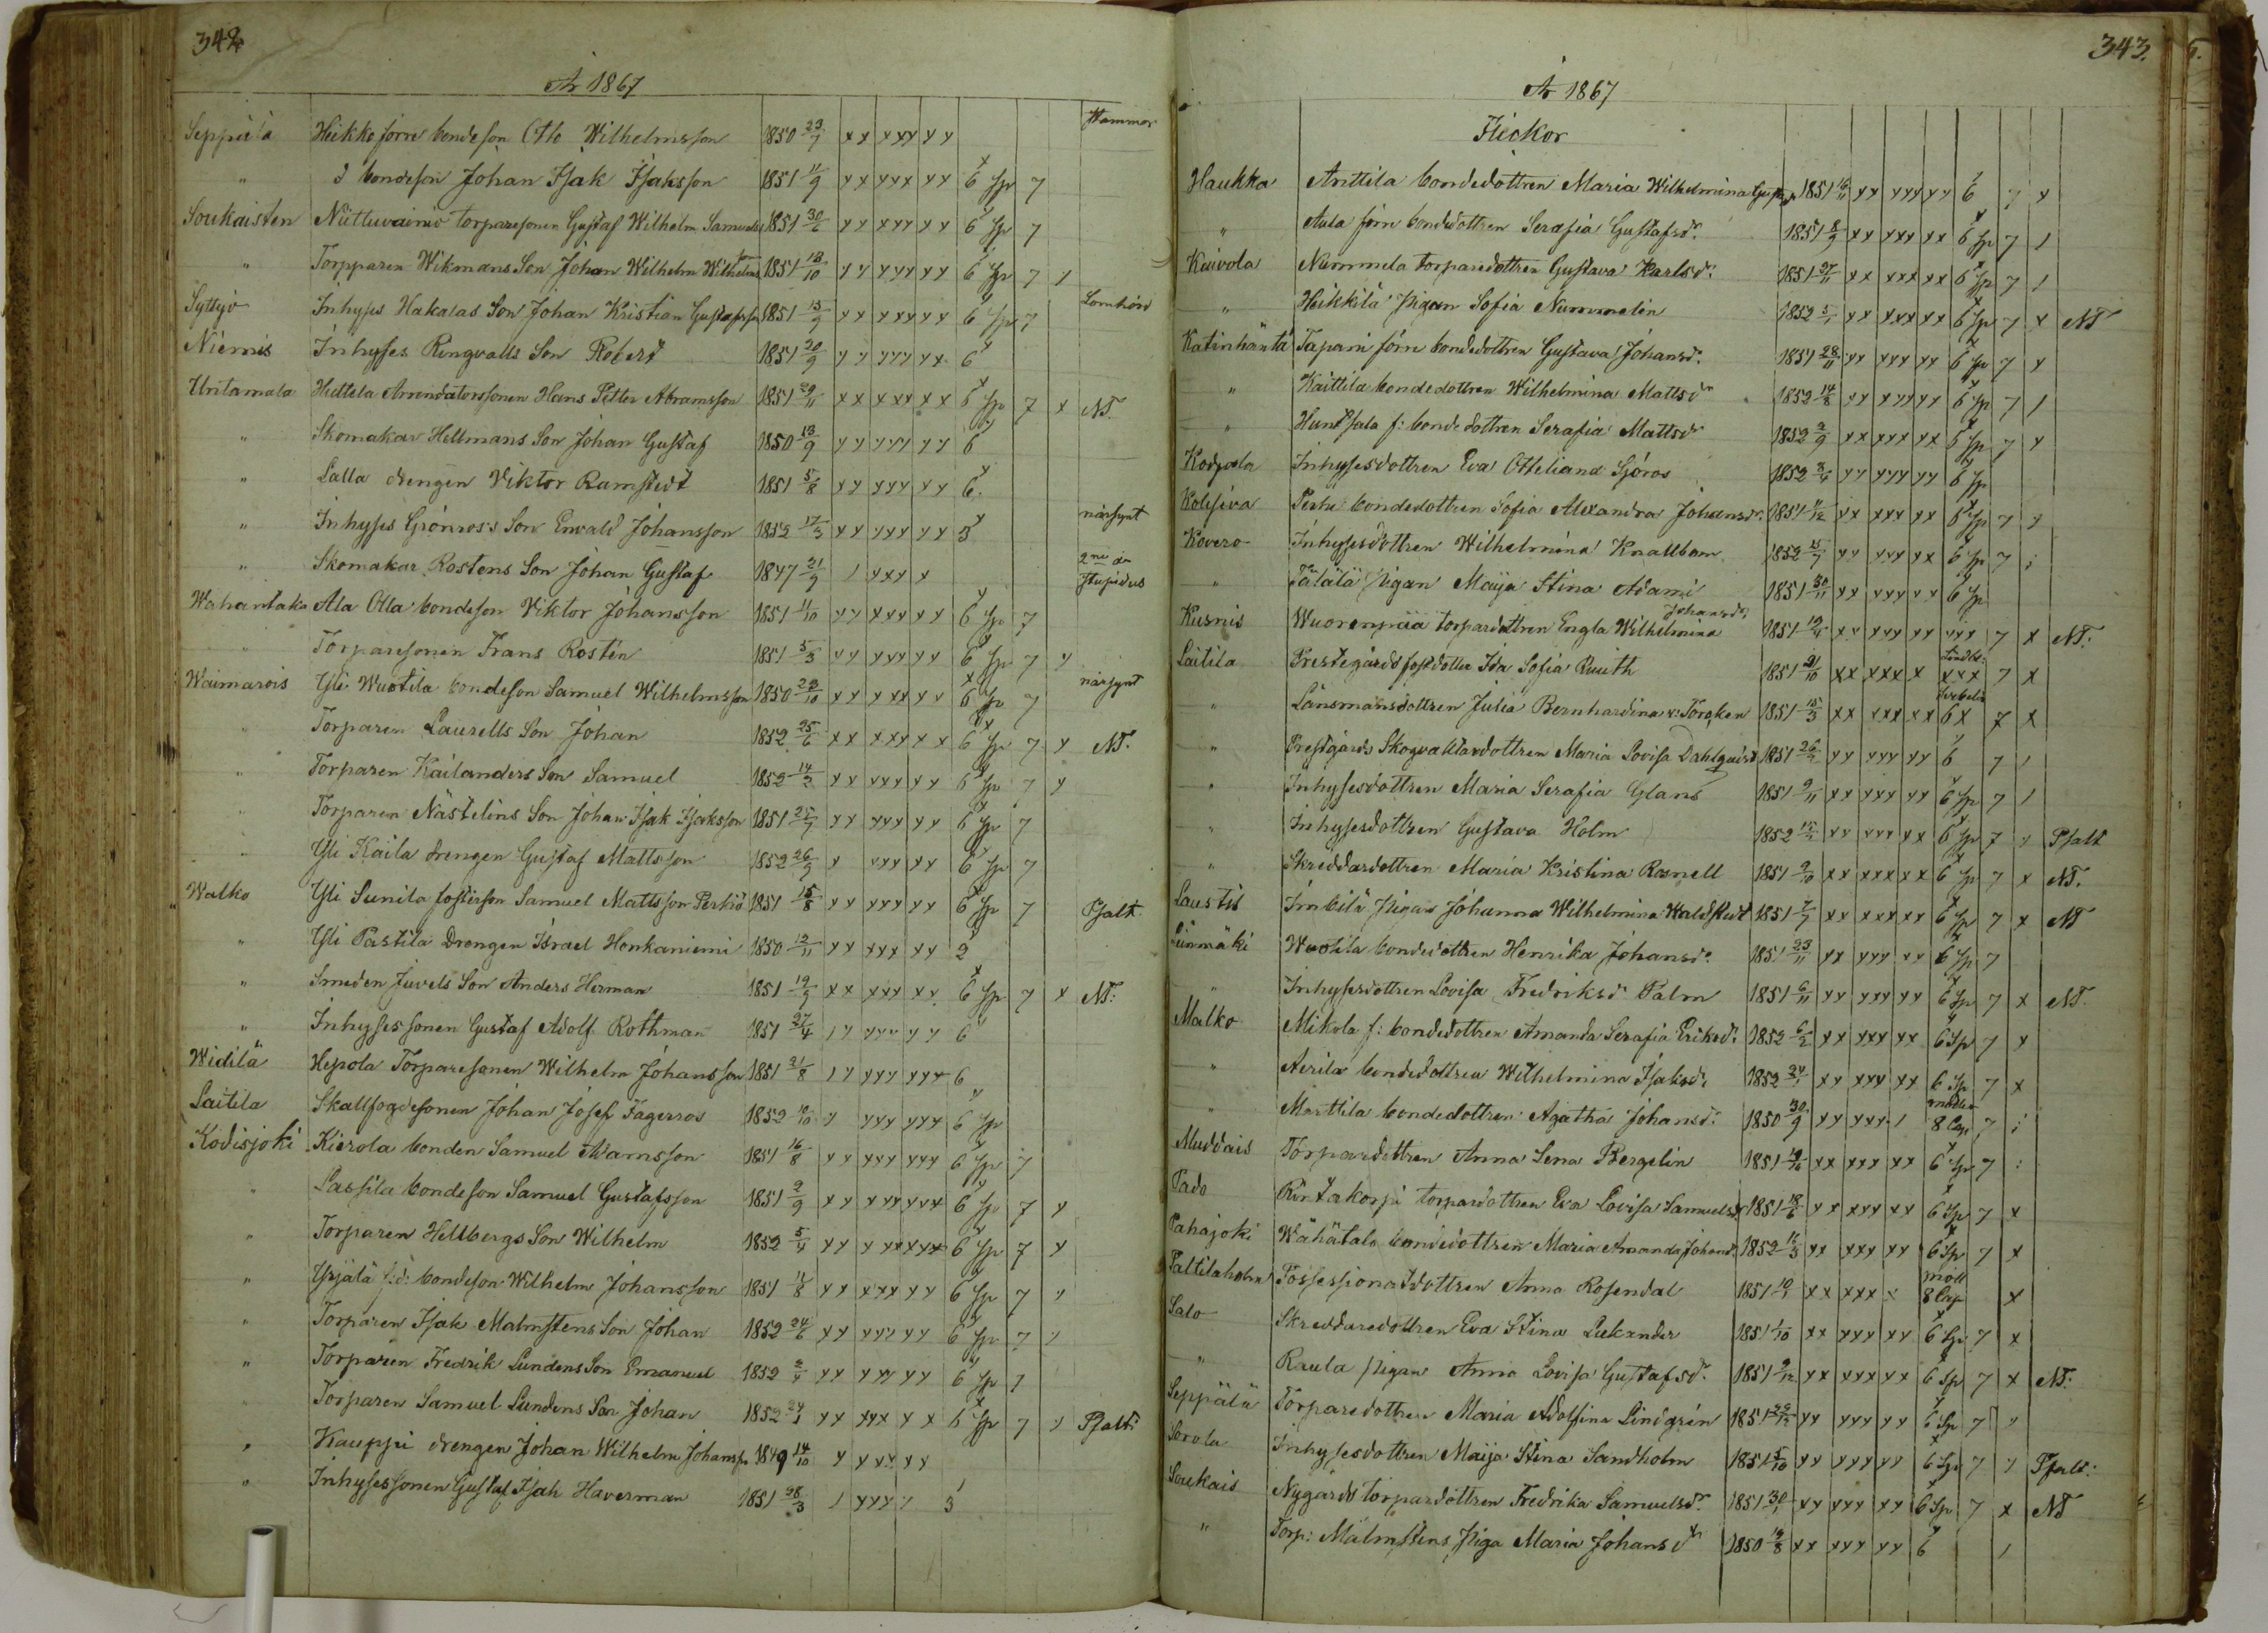 342
År 1867
Seppälä Heikko förre bondeson Otto Wilhelmsson 1850 23/7 xx xxx xx Stammar
" d bondeson Johan Isak Isaksson 1851 11/9 xx xxx xx 6 Sp 7
Soukaisten Niittuvainio torparesonen Gustaf Wilhelm Samuelss 1851 30/6 xx xxx xx 6 Sp 7
" Torpparen Wikmans Son Johan Wilhelm Wilhelmsson 1851 13/10 xx xxx xx 6 Sp 7 x
Syttyö Inhyses Hakalas Son Johan Kristian Gustafsson 1851 13/9 xx xxx xx 6 Sp 7 Lomhörd
Niemis Inhyses Ringvalls Son Robert 1851 20/9 xx xxx xx 6
Untamala Hidtela Arrendatorssonen Hans Petter Abramsson 1851 29/11 xx xxx xx 6 Sp 7 x NT.
" Skomakar Hellmans Son Johan Gustaf 1850 13/9 xx xxx xx 6
" Lalla drengen Viktor Ramstedt 1851 5/8 xx xxx xx 6.
" Inhyses Grönross Son Enwald Johansson 1852 17/3 xx xxx xx 3 närsynt
" Skomakar Rostens Son Johan Gustaf 1847 21/9 1 xxx x 2ne år stupidus
Wahantaka Ala Olla bondeson Viktor Johansson 1851 11/10 xx xxx xx 6 Sp 7
" Torparesonen Frans Rostén 1851 5/3 xx xxx xx 6 Sp 7 x
Waimarois Yli Wuotila bondeson Samuel Wilhelmsson 1850 23/10 xx xxx xx 6 Sp 7 närsynt
" Torparen Laurells Son Johan 1852 25/6 xx xxx xx 6 Sp 7 x NT.
" Torparen Kailanders Son Samuel 1852 14/2 xx xxx xx 6 Sp 7 x
" Torparen Nästelins Son Johan Isak Isaksson 1851 25/7 xx xxx xx 6 Sp 7
" Yli Kaila drengen Gustaf Mattsson 1852 26/9 x xxx xx 6 Sp 7
Walko Yli Sunila fosterson Samuel Mattsson Perhiö 1851 15/8 xx xxx xx 6 Sp 7 Psalt.
" Yli Pastila Drengen Israel Honkaniemi 1850 12/11 xx xxx xx 2
" Smeden Juvels Son Anders Herman 1851 19/9 xx xxx xx 6 Sp 7 x NT:
" Inhysessonen Gustaf Adolf Rothman 1851 27/4 1x xxx xx 6
Widilä Hepola Torparesonen Wilhelm Johansson 1851 21/8 1x xxx xxx 6
Laitila Skallfogdesonen Johan Josef Fagerros 1852 10/10 x xxx xxx 6 Sp
Kodisjoki Kierola bonden Samuel Mårnsson 1851 16/8 xx xxx xxx 6 Sp 7
" Lassila bondeson Samuel Gustafsson 1851 2/9 xx xxx xxx 6 Sp 7 x
" Torparen Hellbergs Son Wilhelm 1852 5/4 xx xxxxxx 6 Sp 7 x
" Yrjälä f:d: bondeson Wilhelm Johansson 1851 11/8 xx xxx xx 6 Sp 7 x
" Torparen Isak Malmstens Son Johan 1852 24/6 xx xxx xx 6 Sp 7 x
" Torparen Fredrik Lundens Son Emanuel 1852 2/4 xx xxx xx 6 Sp 7
" Torparen Samuel Lundens Son Johan 1852 24/1 xx xxx xx 6 Sp 7 x Psalt:
" Kauppi drengen Johan Wilhelm Johanss. 1849 14/10 x xxx xx
" Inhysessonen Gustaf Isak Haverman 1851 28/3 1 xxx x 3
343.
År 1867
Flickor
Haukka Anttila bondedottren Maria Wilhelmina Gustafsd. 1851 16/11 xx xxx xx 6 7 x
" Aula förre bondedottren Serafia Gustafsdr. 1851 8/9 xx xxx xx 6 Sp 7 1
Kaivola Nummela torparedottren Gustava Karlsd: 1851 27/11 xx xxx xx 6 Sp 7 1
" Heikkilä Pigan Sofia Nummelin 1852 5/1 xx xxx xx 6 Sp 7 x NT
Katinhäntä Tapani förre bondedottren Gustava Johansd. 1851 28/11 xx xxx xx 6 Sp 7 x
" Kaittila bondedottren Wilhelmina Mattsdr 1852 14/8 xx xxx xx 6 Sp 7 1
" Huntsala f: bondedottren Serafia Mattsdr 1852 2/9 xx xxx xx 6 Sp 7 x
Kodjala Inhysesdottren Eva Otteliana Sjöros 1852 3/4 xx xxx xx 6 Sp
Kolsiva Perhe bondedottren Sofia Alexandra Johansdr. 1851 11/12 xx xxx xx 6 Sp 7 x
Kovero Inhysesdottren Wilhelmina Knallbom 1852 15/7 xx xxx xx 6 Sp 7 i
" Tälälä Pigan Maija Stina Adami 1851 30/11 xx xxx xx 6 Sp
Kusnis Wuorenpää torpardottren Engla Wilhelmina Johansdr 1851 12/4 xx xxx xx xxx 7 x NT.
Laitila Prestegårds fostdotter Ida Sofia Ruuth 1851 21/10 xx xxx x xxx 7 x
" Länsmansdottren Julia Bernhardina v: Törcken 1851 15/3 xx xxx xx 6x 7 x
" Prestgårds Skogvaktardottren Maria Lovisa Dahlqvist 1851 26/2 xx xxx xx 6 7 1
" Inhysesdottren Maria Serafia Glans 1851 9/11 xx xxx xx 6 Sp 7 1
" Inhysesdottren Gustava Holm 1852 15/2 xx xxx xx 6 Sp 7 x Psalt
" Skreddardottren Maria Kristina Rosnell 1851 2/10 xx xxx xx 6 Sp 7 x NT.
Laustis Inkilä Pigan Johanna Wilhelmina Waldstedt 1851 7/7 xx xxx xx 6 Sp 7 x NT
Liinmäki Wuotila bondedottren Henrika Johansd. 1851 23/11 xx xxx xx 6 Sp 7
" Inhysesdottren Lovisa Fredriksdr Palm 1851 6/11 xx xxx xx 6 Sp 7 x NT.
Malko Mikola f: bondedottren Amanda Serafia Eriksd: 1852 6/2 xx xxx xx 6 Sp 7 x
" Airila bondedottren Wilhelmina Isaksd: 1852 24/1 xx xxx xx 6 Sp 7 x
" Marttila bondedottren Agatha Johansd: 1850 30/9 xx xxx 1 8 Cap 7 i
Muddais Torpardottren Anna Lena Bergelin 1851 19/10 xx xxx xx 6 Sp 7 :
Pado Rintakorpi torpardottren Eva Lovisa Samuelsd. 1851 18/6 xx xxx xx 6 Sp 7 x
Pahajoki Wähätalo bondedottren Maria Amanda Johansd. 1852 16/3 xx xxx xx 6 Sp 7 x
Paltilaholm Possessionatdottren Anna Rosendal 1851 10/7 xx xxx x 8 Cap x
Salo Skreddaredottren Eva Stina Lekander 1851 1/10 xx xxx xx 6 Sp 7 x
" Raula Pigan Anna Lovisa Gustafsdr. 1851 9/12 xx xxx xx 6 Sp 7 x NT:
Seppälä Torparedottren Maria Adolfina Lindgrén 1851 22/12 xx xxx xx 6 Sp 7 x
Sorola Inhysesdottren Maija Stina Sandholm 1851 5/10 xx xxx xx 6 Sp 7 x Psalt:
Soukais Nygårds torpardottren Fredrika Samuelsdr. 1851 30/1 xx xxx xx 6 Sp 7 x NT
" Torp: Malmstens Piga Maria Johansdr 1850 19/8 xx xxx xx 6 1